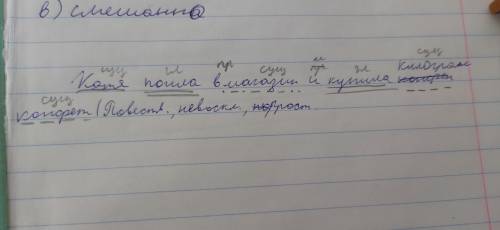 в) смешанно
сущ гл пр сущ и гл сущ
Катя пошла в магазин и купила килограмм
сущ
конфет (Повеств., невоскл., прост.